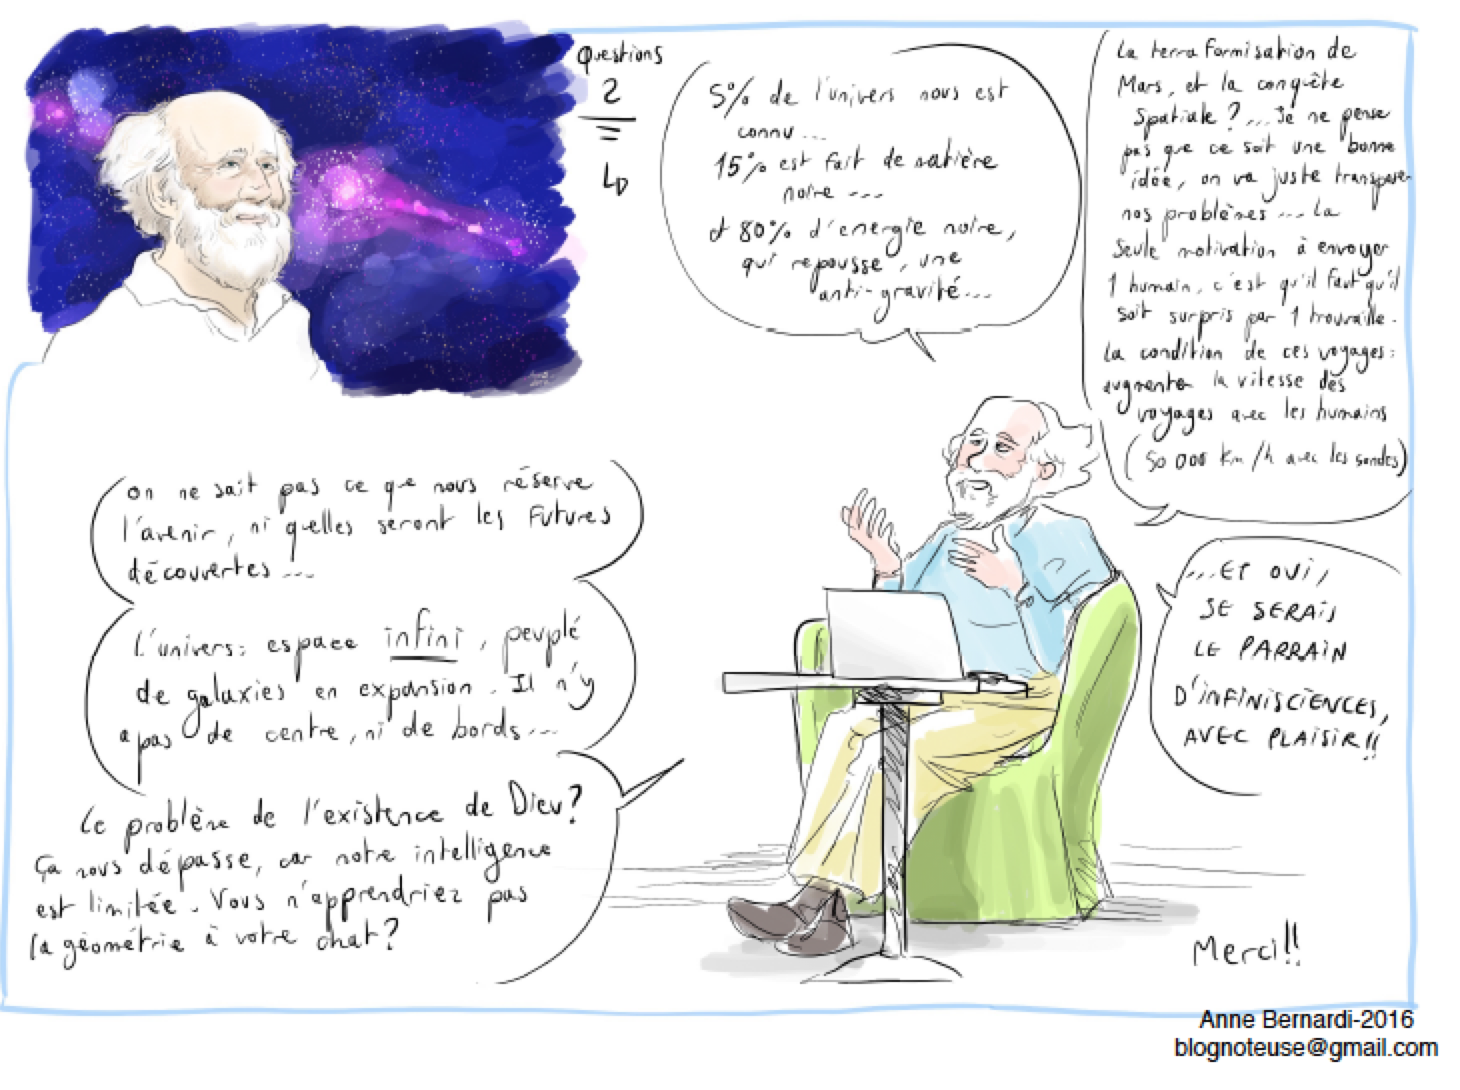 Questions
2
5% de l'univers nous est
connu...
15% est fait de matière
noire ...
et 80% d'energie noire,
qui repousse, une
anti-gravité...
La terra formisation de
Mars, et la conquête
spatiale ?... Je ne pense
pas que ce soit une bonne
idée, on va juste transposer
nos problèmes ... La
seule motivation à envoyer
1 humain, c'est qu'il faut qu'il
soit surpris par 1 trouvaille.
la condition de ces voyages:
augmenter la vitesse des
voyages avec les humains
(50 000 km/h avec les sondes)
...ET OUI,
JE SERAIS
LE PARRAIN
D'INFINISCIENCES,
AVEC PLAISIR!!
On ne sait pas ce que nous réserve
l'avenir, ni quelles seront les futures
découvertes ...
L'univers: espace infini, peuplé
de galaxies en expansion. Il n'y
a pas de centre, ni de bords...
Le problème de l'existence de Dieu?
Ça nous dépasse, car notre intelligence
est limitée. Vous n'apprendriez pas
la géométrie à votre chat?
Merci!!
Anne Bernardi-2016
blognoteuse@gmail.com